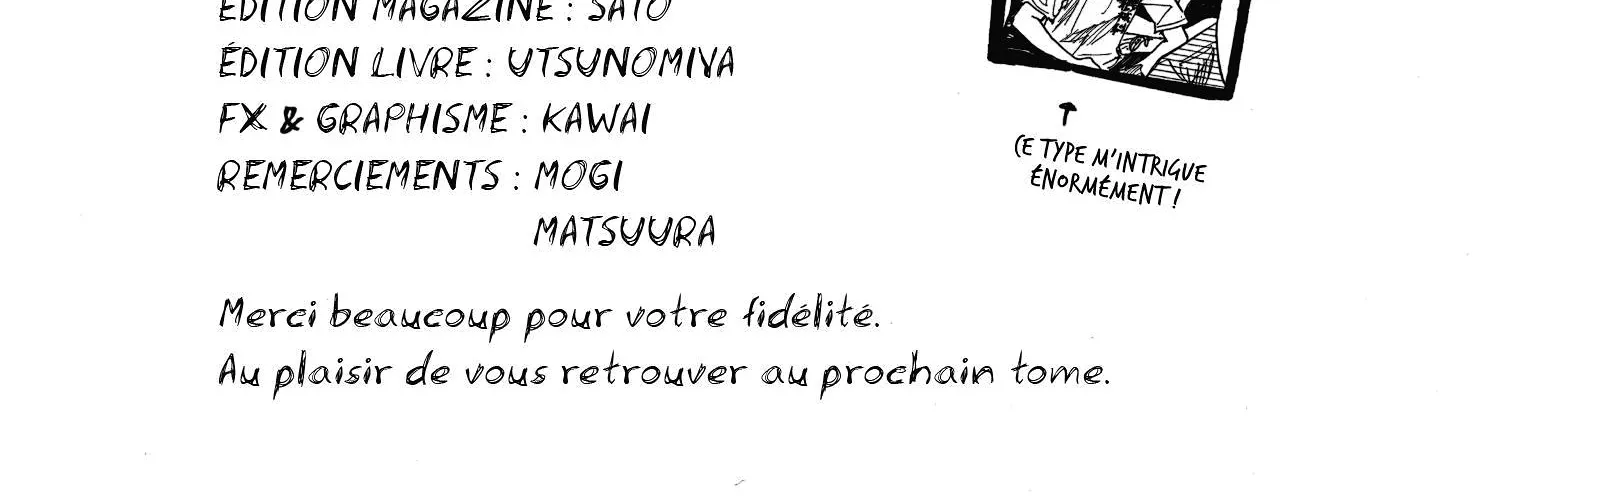 ÉDITION MAGAZINE : SATO
ÉDITION LIVRE : UTSUNOMIYA
FX & GRAPHISME : KAWAI
REMERCIEMENTS : MOGI
MATSUURA
CE TYPE M'INTRIGUE
ÉNORMÉMENT !
Merci beaucoup pour votre fidélité.
Au plaisir de vous retrouver au prochain tome.